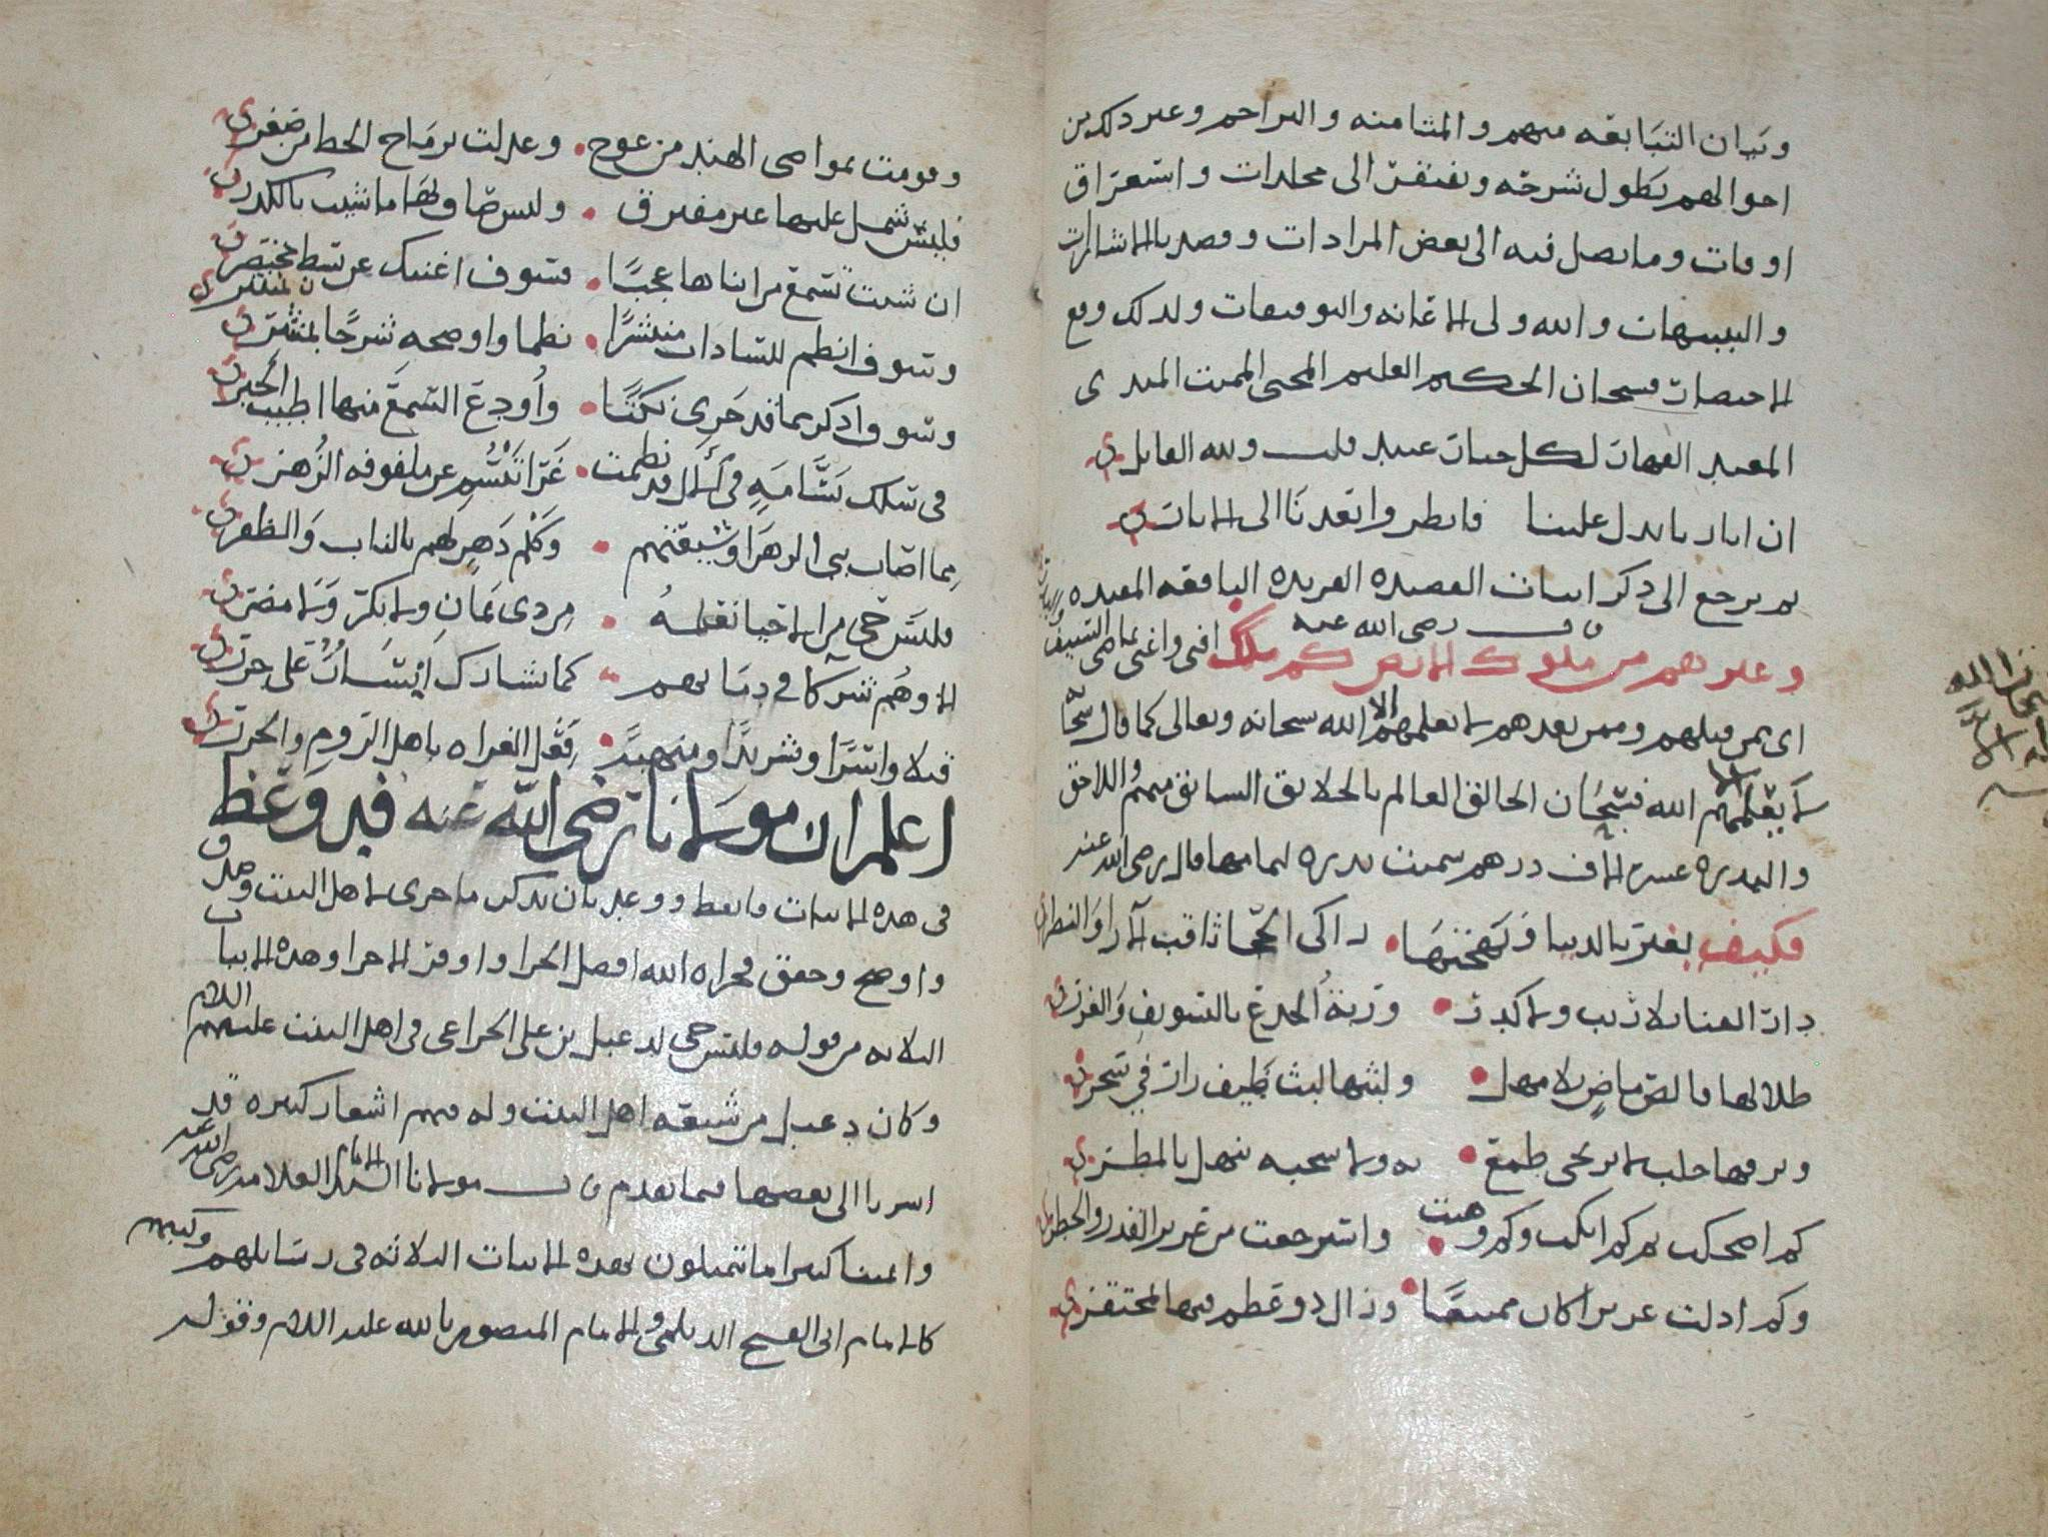 وبيان التبابعه منهم والمثامنه والبراجم وغير ذلك من
احوالهم يطول شرحه ويفتقر الى مجلدات واستغراق
اوقات وما نصل فيه الى بعض المرادات وقصدنا الاشارات
والتنبيهات والله ولي الاعانه والتوفيقات ولذلك وقع
الاختصار فسبحان الحكيم العليم المحيي المميت المبدي
المعيد القهار لكل جبار عنيد قلت ولله القايل
ان اثارنا تدل علينا فانظروا بعدنا الى الاثار
ثم نرجع الى ذكر ابيات القصيده الفريده اليافعه المفيده
قال رضي الله عنه
وغيرهم من ملوك الارض كم ملك افنى واغنى بماضي السيف
اي ممن قبلهم وممن بعدهم لا يعلمهم الا الله سبحانه وتعالى كما قال
لا يعلمهم الا الله فسبحان الخالق العالم بالخلايق السابق منهم واللاحق
والبدره عشره الاف درهم سميت بدره لتمامها قال رضي الله عنه
فكيف يغتر بالدنيا وبهجتها ذاكي الحجا ثاقب الاراء والنظر
دار الفنا بلا ريب ولا كذب وزينة الخدع بالتسويف والغرر
طلالها قالص ماض بلا مهل ولبثها لبث طيف زار في سحر
وبرقها خلب لا يرتجى طمع به ولا سحبه تنهل بالمطر
كم اضحكت ثم كم ابكت وكم وهبت واسترجعت من عزيز القدر والخطر
وكم اذلت عزيزا كان ممتنعا وزال ذو عظم فيها لمحتقر
وقومت بمواضي الهند من عوج وعدلت برماح الخط من صعر
فليس شمل عليها غير مفترق وليس صاف بها ما شيب بالكدر
ان شئت تسمع من انبائها عجبا فسوف اغنيك عن بسط بمختصر
وسوف انظم للسادات منتشرا نظما واوضحه شرحا لمنتثر
وسوف اذكر مما قد جرى نكتا وأودع السمع منها اطيب الخبر
في سلك بسامه في لال قد نظمت غرا تبسم عن ملفوفه الزهر
مما اصاب بني الزهرا وشيعتهم وكلم دهر لهم بالناب والظفر
فليس حي من الاحيا نعلمه من ذي يمان ولا بكر ولا مضر
الا وهم شركا في دمائهم كما تشارك ايسار على جزر
قتلا واسرا وتشريدا ومنهبة فعل الغزاه باهل الروم والخزر
اعلم ان مولانا رضي الله عنه قد وعظ
في هذه الابيات فايقظ ووعد بان يذكر ما جرى لاهل البيت وصدق
واوضح وحقق فجزاه الله افضل الجزا واوفر الاجزا وهذه الابيات
الثلاثه من قوله فليس حي لدعبل بن علي الخزاعي في اهل البيت عليهم السلام
وكان دعبل من شيعه اهل البيت وله فيهم اشعار كثيره قد
اشرنا الى بعضها فيما تقدم قال مولانا الامام العلامه رضي الله عنه
وايمتنا كثيرا ما يتمثلون بهذه الابيات الثلاثه في رسايلهم وكتبهم
كالامام ابي الفتح الديلمي والامام المنصور بالله عليه السلام وقوله